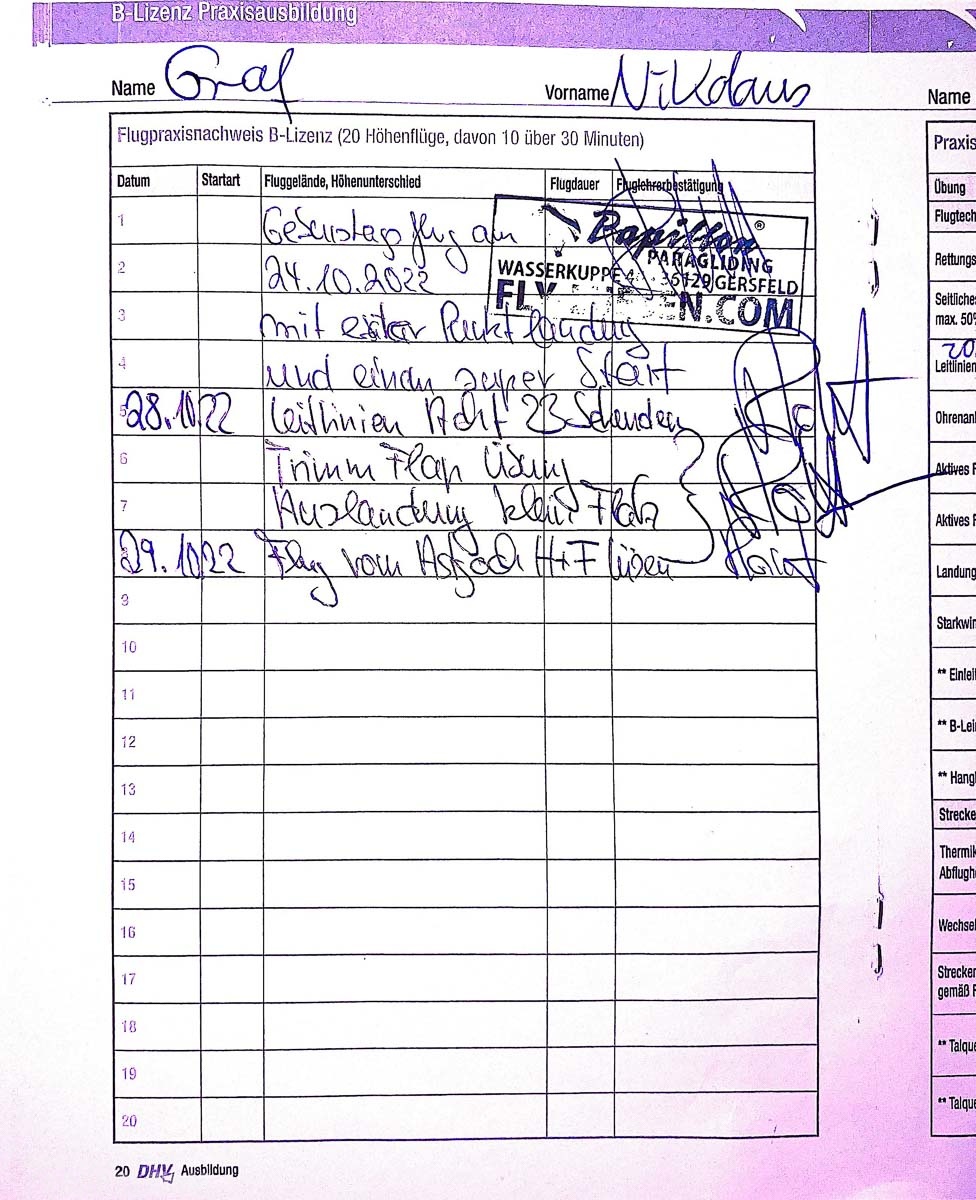 B-Lizenz Praxisausbildung
Name Graf Vorname Nikolaus
Flugpraxisnachweis B-Lizenz (20 Höhenflüge, davon 10 über 30 Minuten)
Datum Startart Fluggelände, Höhenunterschied Flugdauer Fluglehrerbestätigung
Papillon®
PARAGLIDING
WASSERKUPPE 36129 GERSFELD
N.COM
1 Geburtstagsflug am
2 24.10.2022
3 mit Punktlandung
4 und einem super Start
5 28.10.22 Leitlinien Acht 23 Sekunden
6 Trimm Flap Übung
7 Auslandung klein Platz
29.10.22 Flug vom H+F
9
10
11
12
13
14
15
16
17
18
19
20
20 DHV Ausbildung
Name
Praxis
Übung
Flugtech
Rettungs
Seitliches
max. 50%
Leitlinien
Ohrenanl
Aktives F
Aktives F
Landung
Starkwin
** Einleit
** B-Lei
** Hangl
Strecke
Thermik
Abflughö
Wechsel
Strecken
gemäß F
** Talque
** Talque